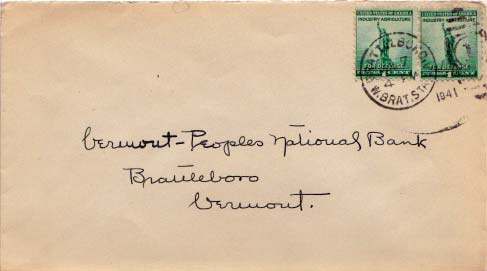 UNITED STATES OF AMERICA UNITED STATES OF AMERICA
INDUSTRY AGRICULTURE INDUSTRY AGRICULTURE
FOR DEFENSE FOR DEFENSE
1 CENT 1 CENT
W. BRAT. STA.
1941
Vermont-Peoples National Bank
Brattleboro
Vermont.